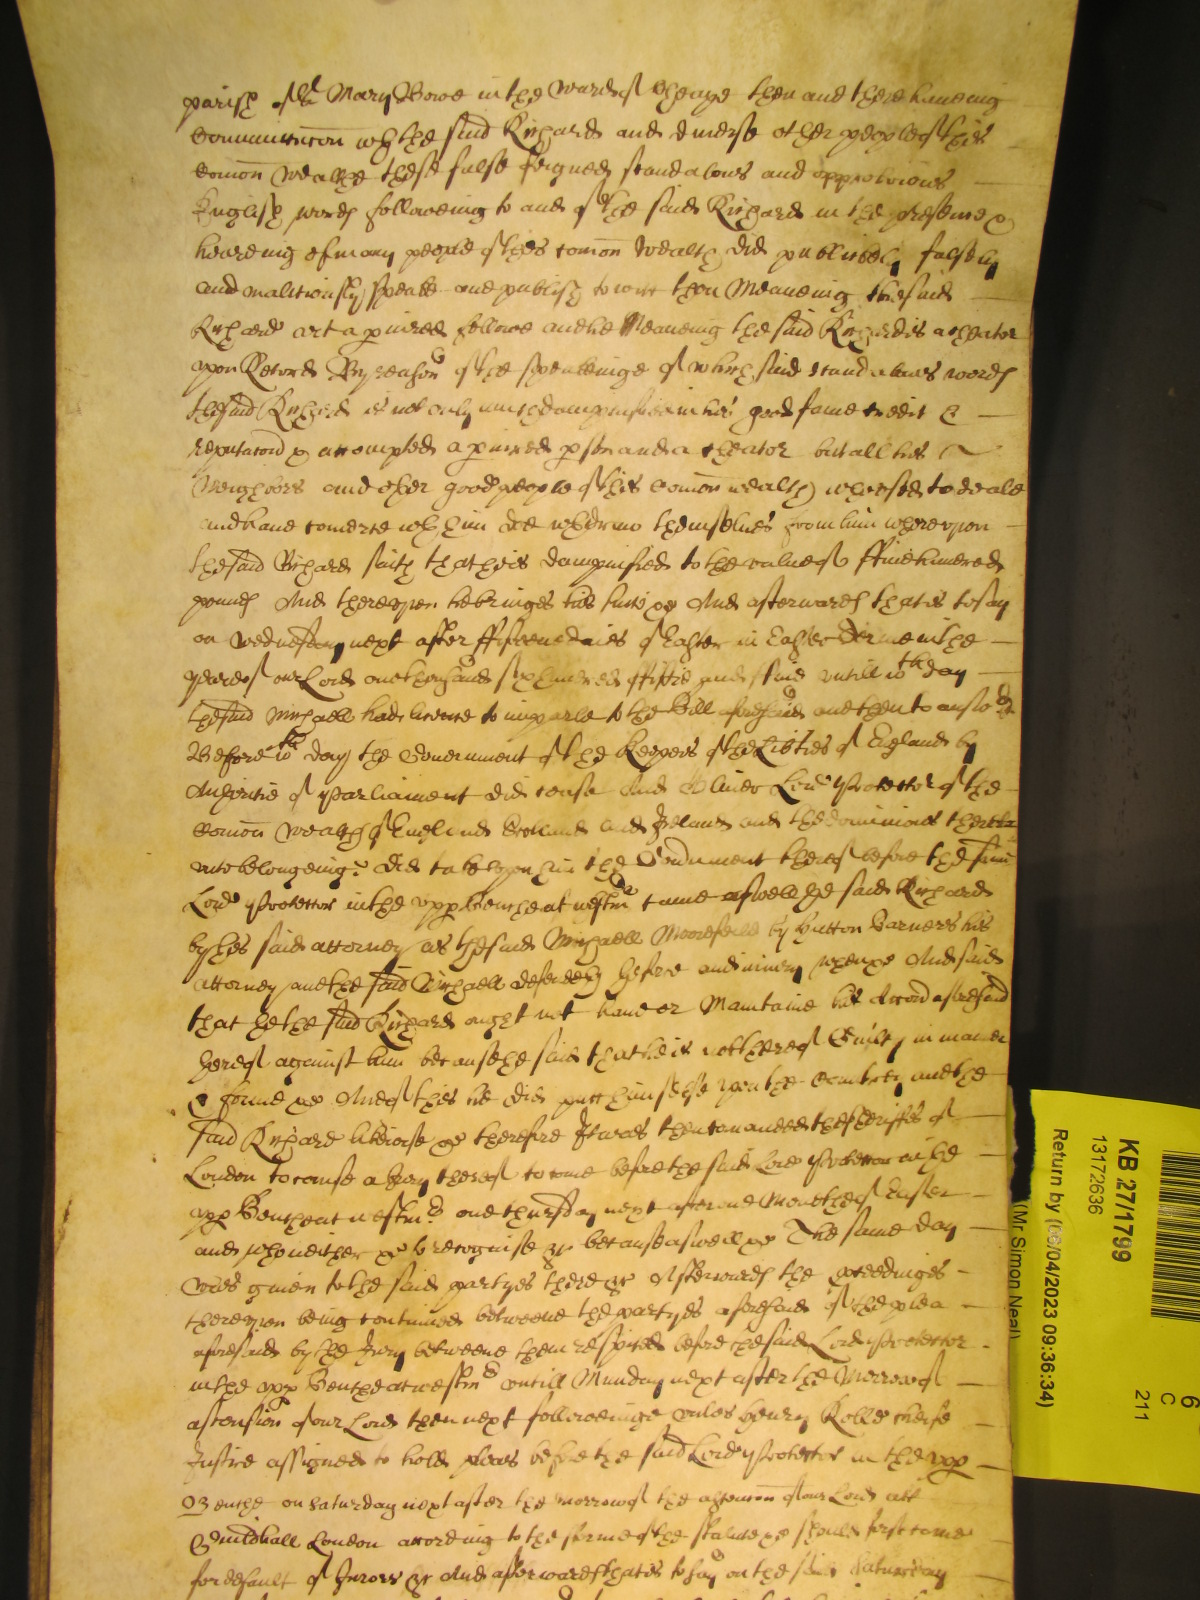 parish of St Mary Bowe in the ward of Cheape then and there haveing
Communicacon wth the said Richard and diverse other people of this
Comon Wealth these false feigned scandalous and opprobrious
English words followeing to and of the said Richard in the presence &
heareing of many people of this Comon Wealth did publiquely falsely
and malitiously speake and publish to witt thou Meaneing the said
Richard art a piured fellowe and he Meaneing the said Richard is a cheator
upon Record By reason of the speakeinge of which said scandalous words
the said Richard is not only much dampnified in his good fame credit &
reputacon & accompted a piured pson and a cheator but all his
Neighbors and other good people of this Comon wealth whoe used to deale
and have comerce wth him doe wthdraw themselves from him whereupon
the said Richard saith that he is dampnified to the value of ffive hundred
pounds And thereupon he bringes his suite &c And afterwards that is to say
on Wednesday next after ffifteene daies of Easter in Easter Terme in the
yeare of our Lord one thousand six hundred ffiftie and ffive untill wch day
the said Michaell had licence to imparle to the Bill aforesaid and then to answer
Before wch day the Government of the Keepers of the Libties of England by
Authoritie of Parliament did cease And Oliver Lord Protector of the
Comon Wealth of England Scotland and Ireland and the dominions thereto
unto belongeing did take upon him the Government thereof before the said
Lord Protector in the upp Bench at Westmr came aswell the said Richard
by his said attorney as the said Michaell Moorefeild by Hutton Barners his
attorney and the said Michaell defendeth the force and iniury when &c And said
that he the said Richard ought not to have or Maintaine his Accon aforesaid
thereof against him because he said that he is not thereof Guilty in maner
& forme &c And of this he did putt himselfe upon the Country and the
said Richard likewise &c therefore It was then comanded the sheriffes of
London to cause a Jury thereof to come before the said Lord Protector in the
upp Bench at Westmr on thursday next after one Moneth of Easter
and who neither &c to recognise &c because aswell &c The same day
was given to the said partyes there &c Afterwards the proceedinges
thereupon being continued betweene the partyes aforesaid of the plea
aforesaid by the Jury betweene them respited before the said Lord Protector
in the upp Bench at Westmr untill Munday next after the Morrow of
ascension of our Lord then next followeinge unles Henry Rolle Cheife
Justice assigned to hold pleas before the said Lord Protector in the upp
Bench on Saturday next after the morrow of the ascencon of our Lord att
Guildhall London according to the forme of the statute &c should first come
for default of Jurors &c And afterwards that is to say on the said Saturday
KB 27/1799
13172636
Return by (06/04/2023 09:36:34)
(Mr Simon Neal)
6
C
211